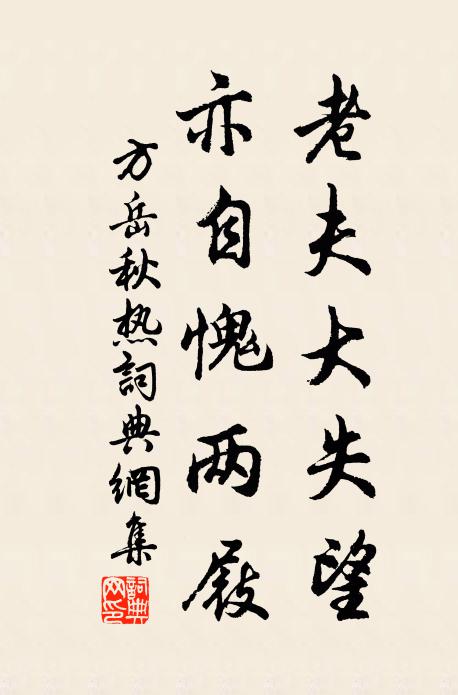 老夫大失望
亦自愧两屐
方岳秋热詞典網集
詞典网印